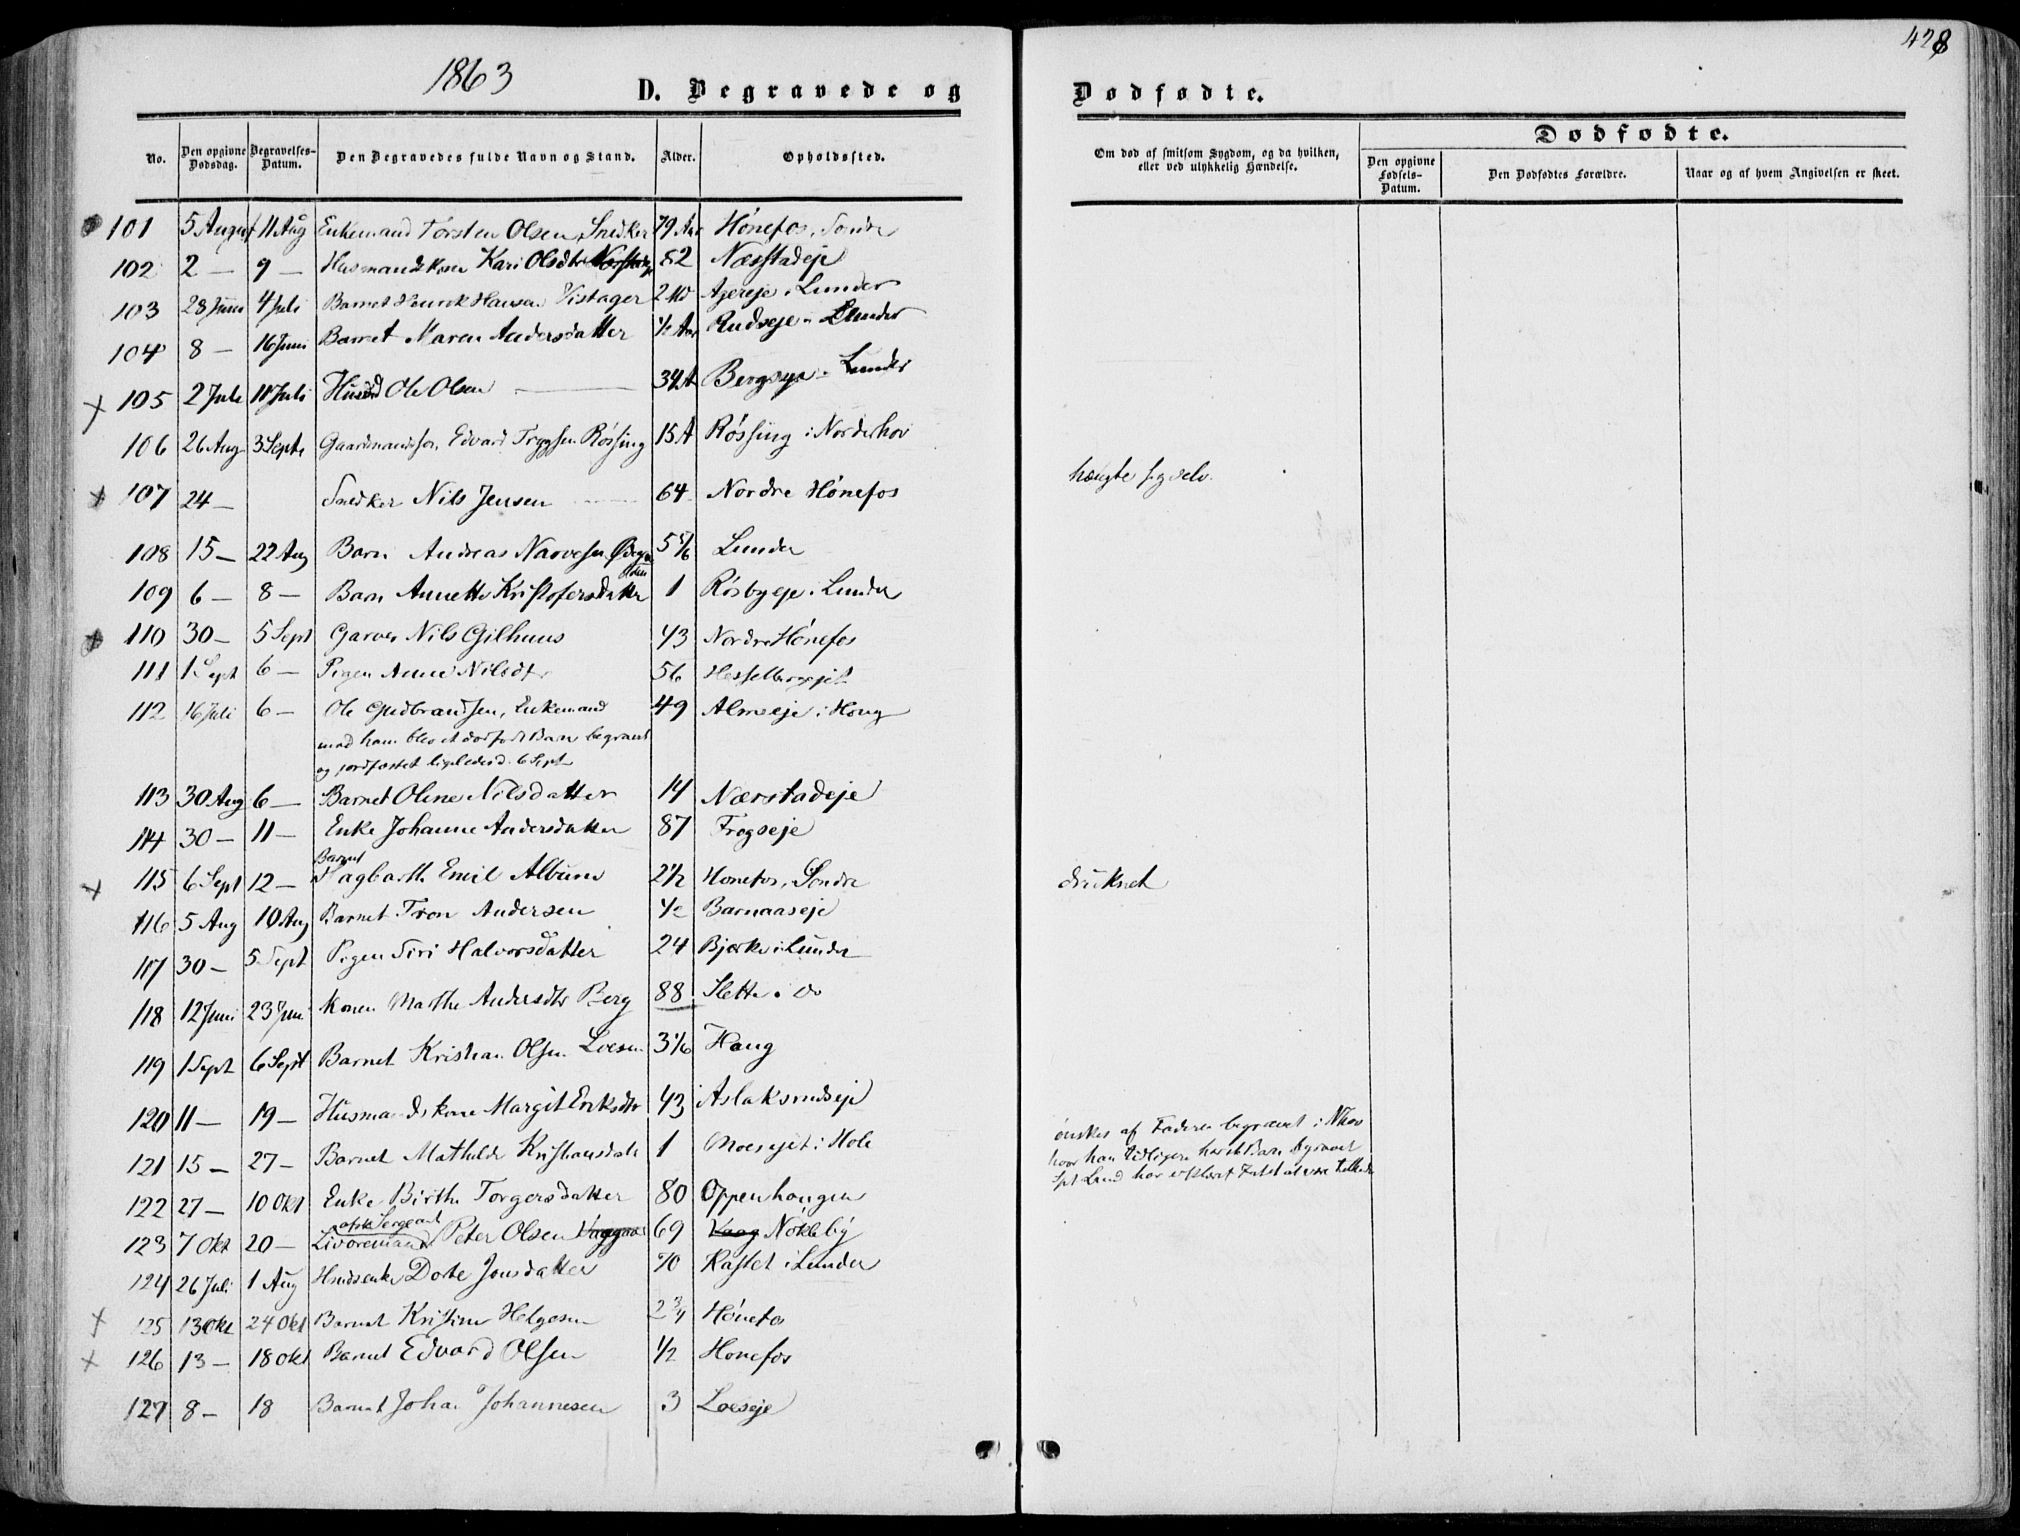 1863
428
D. Begravede og Dødfødte.
Dødfødte.
No. Den opgivne Dødsdag. Begravelses-Datum. Den Begravedes fulde Navn og Stand. Alder. Opholdssted. Om død af smitsom Sygdom, og da hvilken, eller ved ulykkelig Hændelse. Den opgivne Fødsels-Datum. Den Dødfødtes Forældre. Naar og af hvem Angivelsen er skeet.
101 5 August 11 Aug Enkemand Torsten Olsen Snedker 79 Aar Hønefos, Søndre
102 2 — 9 — Husmandskone Kari Olsdtr 82 Næsstadeje
103 28 Juni 4 Juli Barnet Henrik Hansen Vistager 2 Md Agereje i Lunder
104 8 — 16 Juni Barnet Maren Andersdatter ½ Aar Rudseje - Lunder
105 2 Juli 11 Juli Ole Olsen — 34 A Bergseje - Lunder
106 26 Aug 3 Septr Gaardmandssøn Edvard Tryggsen Røssing 15 A Røssing i Norderhov
107 24 — Snedker Nils Jensen 64 Nordre Hønefos hængte sig selv.
108 15 — 22 Aug Barn Andreas Narvesen 5 5/6 Lunder
109 6 — 8 — Barn Annette Kristofersdatter 1 Røsbyeje i Lunder
110 30 — 5 Sept Garver Nils Gilhuus 43 Nordre Hønefos
111 1 Sept 6 — Pigen Anne Nilsdtr 56 Hesselbergejet
112 16 Juli 6 — Ole Gudbrandsen, Enkemand 49 Almeeje i Houg
med ham blev et dødfødt Barn begravet
og jordfæstet ligeledes d. 6 Sept
113 30 Aug 6 — Barnet Oline Nilsdatter 14 Nærstadeje
114 30 — 11 — Enke Johanne Andersdatter 87 Frogseje
Barnet
115 6 Sept 12 — Hagbarth Emil Album 2½ Hønefos, Søndre druknet
116 5 Aug 10 Aug Barnet Tron Andersen ½ Barnaaseje
117 30 — 5 Sept Pigen Siri Halvorsdatter 24 Bjørke i Lunder
118 12 Juni 23 Juni Konen Marthe Andersdtr Berg 88 Slette i do
119 1 Sept 6 Sept Barnet Kristian Olsen Loesen 3 1/6 Houg
120 11 — 19 — Husmandskone Margit Eriksdtr 43 Aslaksrudseje
121 15 — 27 — Barnet Mathilde Kristiansdatr 1 Moesejet i Hole
ønskes af Faderen begravet i Nhov
hvor han tidligere har et Barn begravet
Spt Lund har erklæret
122 27 — 10 Okt Enke Birthe Torgersdatter 80 Oppenhougen
afsk. Sergeant
123 7 Okt 20 — Livøremand Peter Olsen 69 Nøkleby
124 26 Juli 1 Aug Dorte Jonsdatter 70 Rastet i Lunder
125 13 Okt 24 Okt Barnet Kristine Helgesen 2¾ Hønefos
126 13 — 18 Okt Barnet Edvard Olsen ½ Hønefos
127 8 — 18 Barnet Johan Johannesen 3 Loeseje